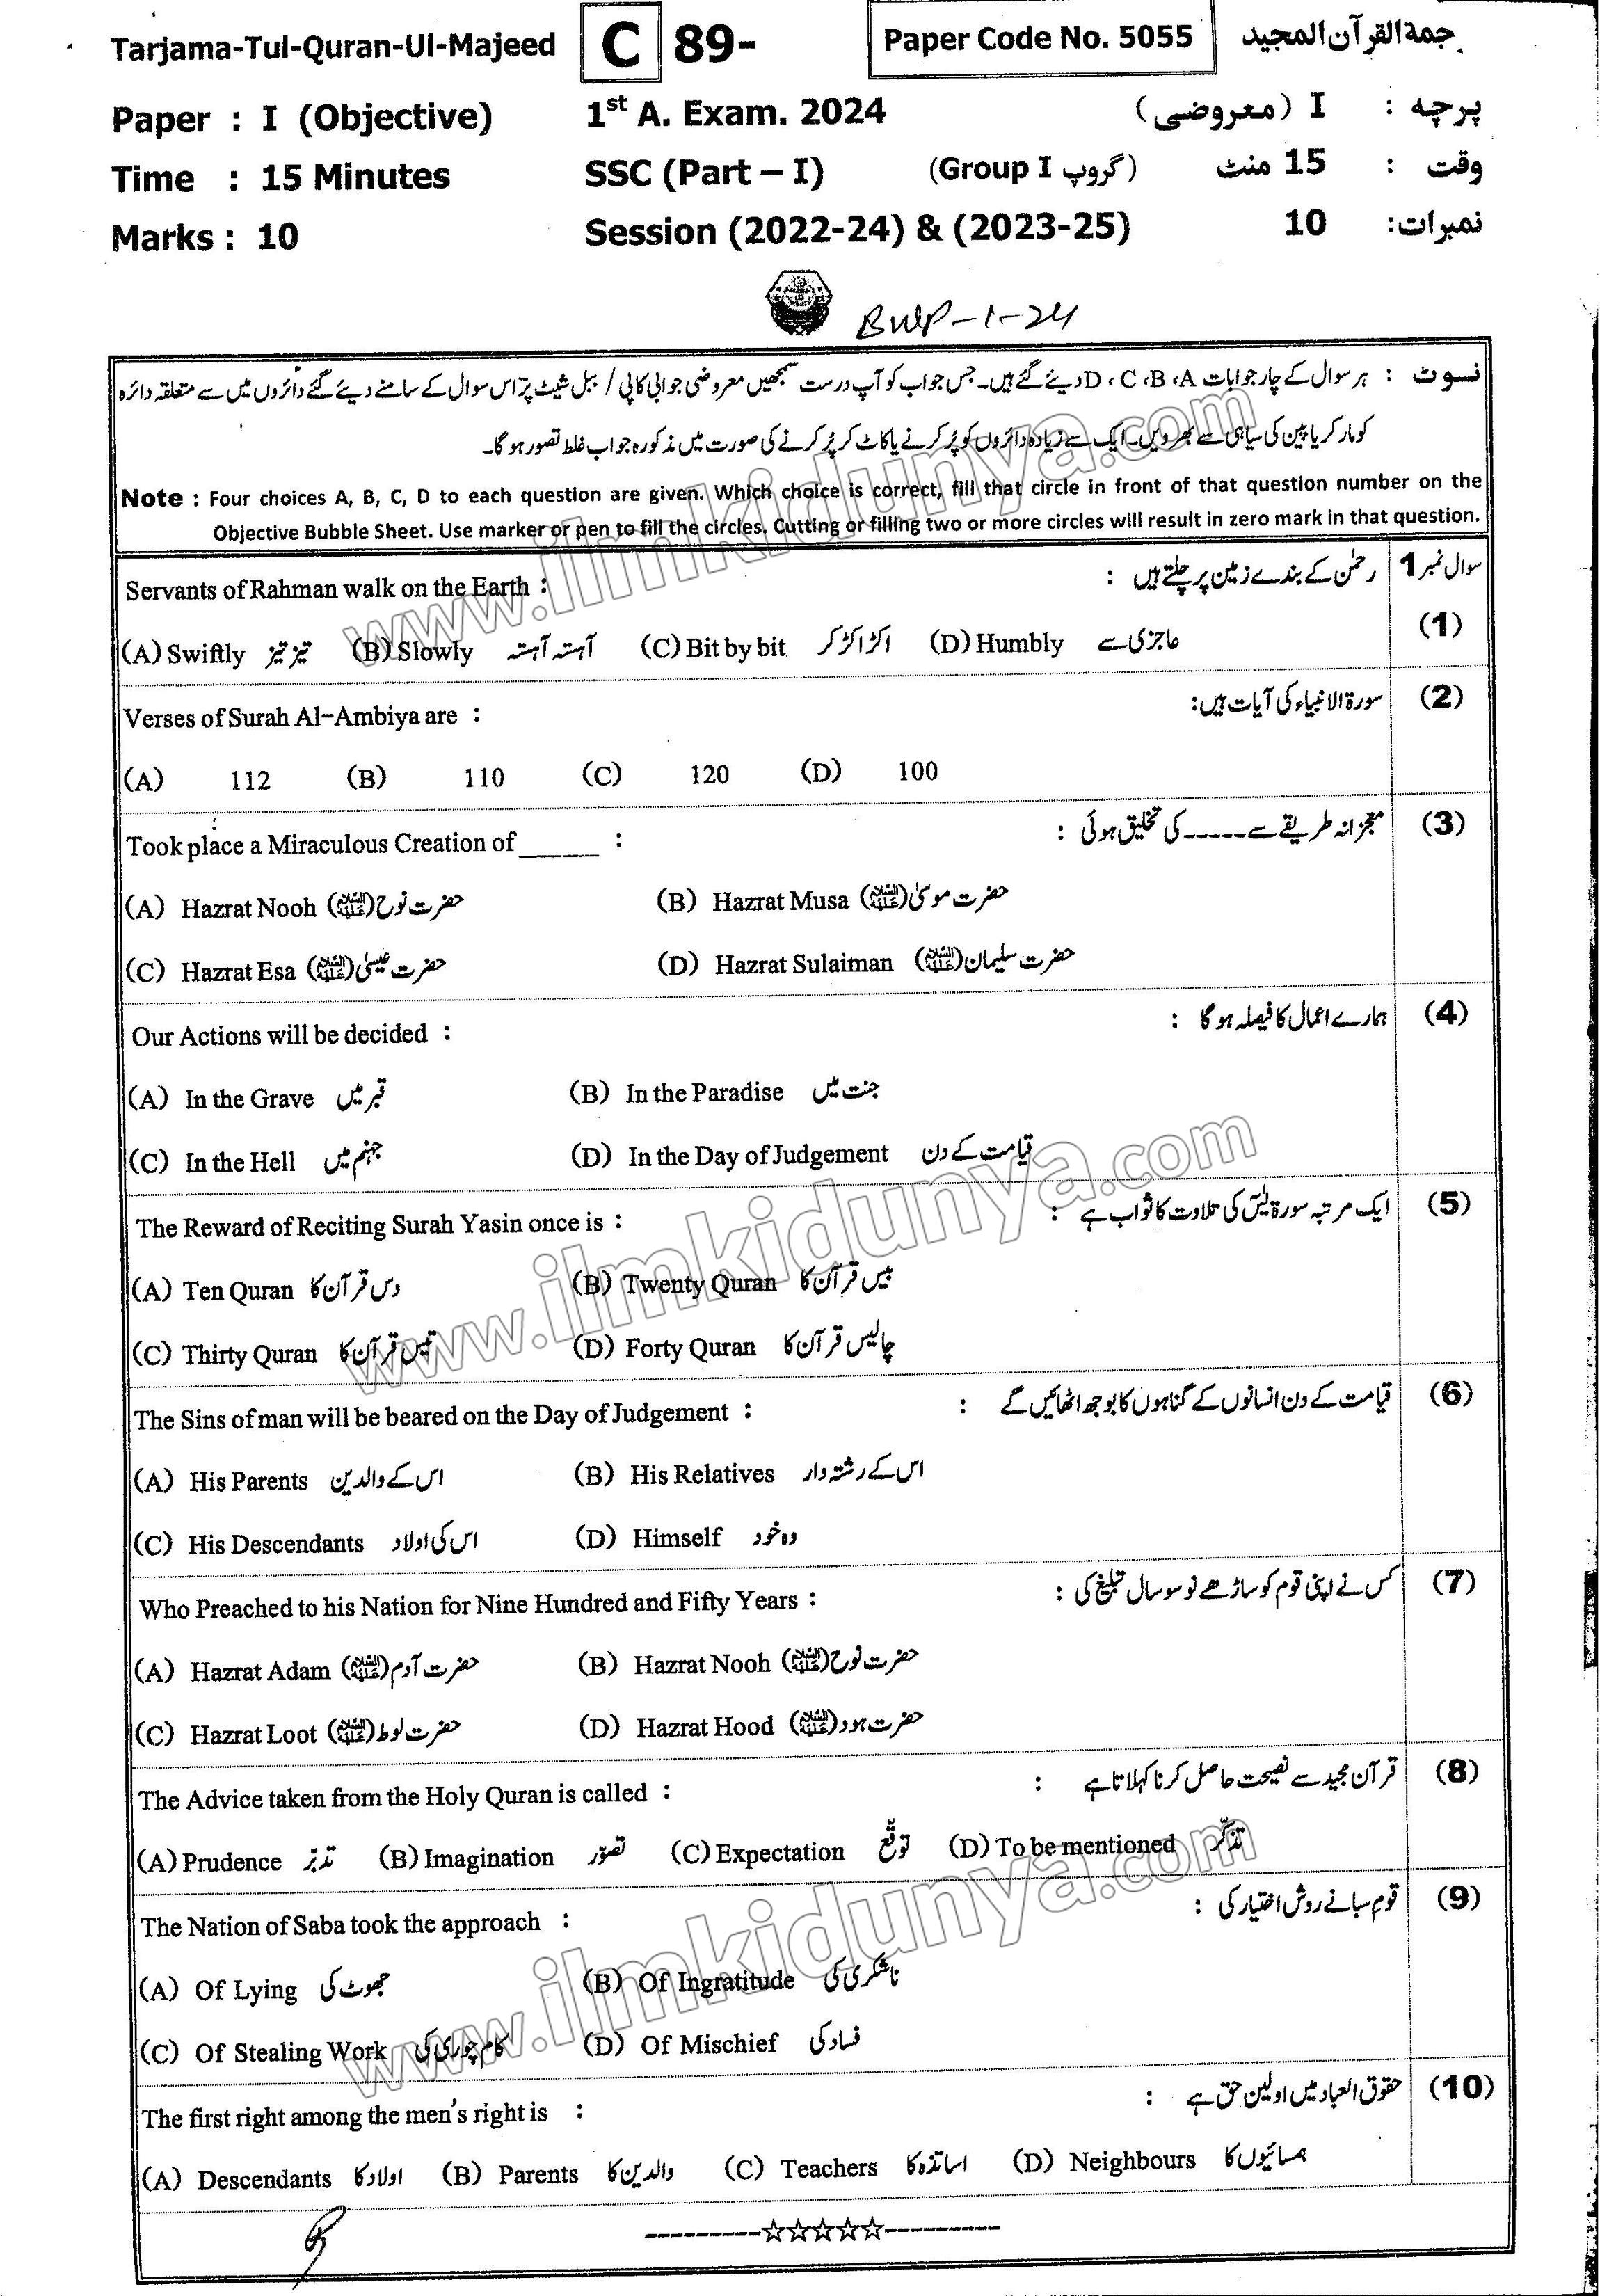 Tarjama-Tul-Quran-Ul-Majeed C 89- Paper Code No. 5055 جمۃ القرآن المجید
Paper : I (Objective) 1st A. Exam. 2024 پرچہ : I (معروضی)
Time : 15 Minutes SSC (Part – I) (Group I گروپ) وقت : 15 منٹ
Marks : 10 Session (2022-24) & (2023-25) نمبرات: 10
BWP-1-24
نوٹ : ہر سوال کے چار جوابات A، B، C، D دیئے گئے ہیں۔ جس جواب کو آپ درست سمجھیں معروضی جوابی کاپی / ببل شیٹ پر اس سوال کے سامنے دیئے گئے دائروں میں سے متعلقہ دائرہ
کو مارکر یا پین کی سیاہی سے بھر دیں۔ ایک سے زیادہ دائروں کو پُر کرنے یا کاٹ کر پُر کرنے کی صورت میں مذکورہ جواب غلط تصور ہوگا۔
Note : Four choices A, B, C, D to each question are given. Which choice is correct, fill that circle in front of that question number on the
Objective Bubble Sheet. Use marker or pen to fill the circles. Cutting or filling two or more circles will result in zero mark in that question.
Servants of Rahman walk on the Earth : رحمٰن کے بندے زمین پر چلتے ہیں : سوال نمبر 1
(1)
(A) Swiftly تیز تیز (B) Slowly آہستہ آہستہ (C) Bit by bit اکڑ اکڑ کر (D) Humbly عاجزی سے
Verses of Surah Al-Ambiya are : سورۃ الانبیاء کی آیات ہیں: (2)
(A) 112 (B) 110 (C) 120 (D) 100
Took place a Miraculous Creation of ______ : معجزانہ طریقے سے ----- کی تخلیق ہوئی : (3)
(A) Hazrat Nooh (علیہ السلام) حضرت نوح (B) Hazrat Musa (علیہ السلام) حضرت موسیٰ
(C) Hazrat Esa (علیہ السلام) حضرت عیسیٰ (D) Hazrat Sulaiman (علیہ السلام) حضرت سلیمان
Our Actions will be decided : ہمارے اعمال کا فیصلہ ہو گا : (4)
(A) In the Grave قبر میں (B) In the Paradise جنت میں
(C) In the Hell جہنم میں (D) In the Day of Judgement قیامت کے دن
The Reward of Reciting Surah Yasin once is : ایک مرتبہ سورۃ یٰسٓ کی تلاوت کا ثواب ہے : (5)
(A) Ten Quran دس قرآن کا (B) Twenty Quran بیس قرآن کا
(C) Thirty Quran تیس قرآن کا (D) Forty Quran چالیس قرآن کا
The Sins of man will be beared on the Day of Judgement : قیامت کے دن انسانوں کے گناہوں کا بوجھ اٹھائیں گے : (6)
(A) His Parents اس کے والدین (B) His Relatives اس کے رشتہ دار
(C) His Descendants اس کی اولاد (D) Himself وہ خود
Who Preached to his Nation for Nine Hundred and Fifty Years : کس نے اپنی قوم کو ساڑھے نو سو سال تبلیغ کی : (7)
(A) Hazrat Adam (علیہ السلام) حضرت آدم (B) Hazrat Nooh (علیہ السلام) حضرت نوح
(C) Hazrat Loot (علیہ السلام) حضرت لوط (D) Hazrat Hood (علیہ السلام) حضرت ہود
The Advice taken from the Holy Quran is called : قرآن مجید سے نصیحت حاصل کرنا کہلاتا ہے : (8)
(A) Prudence تدبّر (B) Imagination تصوّر (C) Expectation توقّع (D) To be mentioned تذکّر
The Nation of Saba took the approach : قومِ سبا نے روش اختیار کی : (9)
(A) Of Lying جھوٹ کی (B) Of Ingratitude ناشکری کی
(C) Of Stealing Work کام چوری کی (D) Of Mischief فساد کی
The first right among the men's right is : حقوق العباد میں اولین حق ہے : (10)
(A) Descendants اولاد کا (B) Parents والدین کا (C) Teachers اساتذہ کا (D) Neighbours ہمسائیوں کا
---------☆☆☆☆☆---------
www.ilmkidunya.com
www.ilmkidunya.com
www.ilmkidunya.com